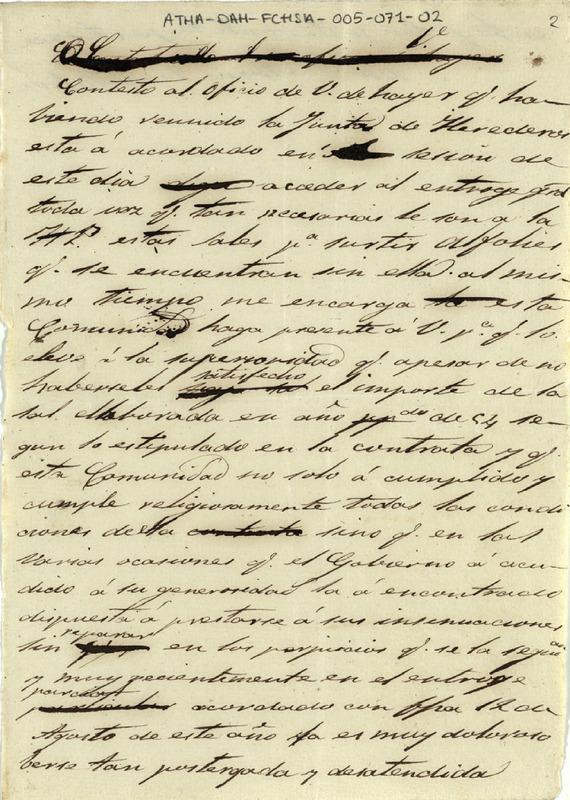 ATHA-DAH-FCHSA-005-071-02
2
V.e
Contesto al oficio de V. de hayer q.e ha-
biendo reunido la Junta de Herederos
esta á acordado en sesion de
este dia acceder al entrege gral
toda vez q.e tan necesarias le son a la
H.P. estas sales p.a surtir Alfolies
q.e se encuentran sin ella. al mis-
mo tiempo me encarga esta
Comunidad haga presente á V. p.a q.e lo
eleve á la superioridad q.e apesar de no
haberseles satisfecho el importe de la
sal elaborada en año de 54 se-
gun lo estipulado en la contrata y q.e
esta Comunidad no solo á cumplido y
cumple religiosamente todas las condi-
ciones de ella sino q.e en las
varias ocasiones q.e el Gobierno á acu-
dido á su generosidad la á encontrado
dispuesta á prestarse á sus insinuaciones
sin reparar en los perjuicios q.e se la
y muy recientemente en el entrege
parcial acordado con fha 12 de
Agosto de este año ya es muy doloroso
berse tan postergada y desatendida